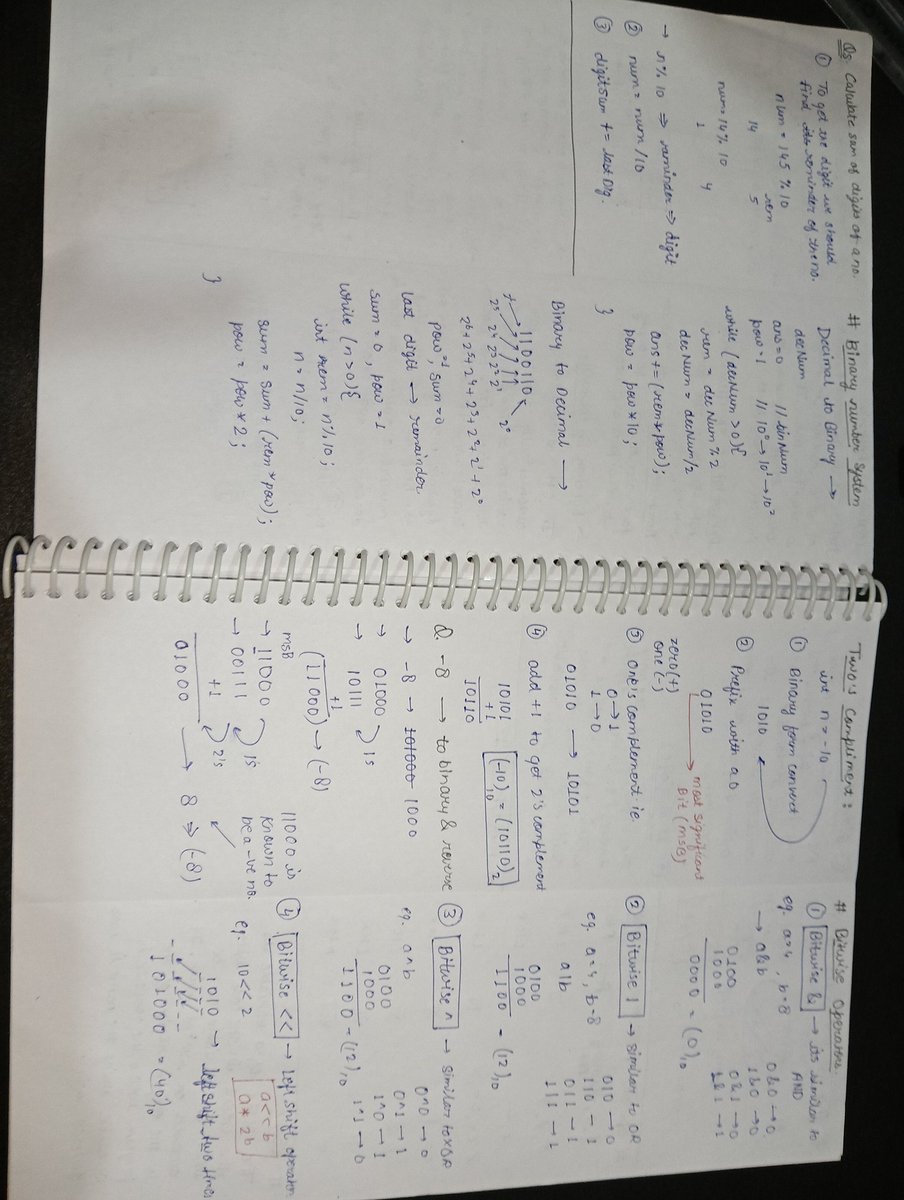 Q5 Calculate sum of digits of a no.
① To get the digit we should
find the reminder of the no.
num = 145 % 10
rem
14 5
num = 14 % 10
1 4
→ n % 10 ⇒ reminder ⇒ digit
② num = num / 10
③ digitSum += lastDig.
# Binary number system
Decimal to Binary →
decNum
ans = 0 // binNum
pow = 1 // 10⁰ → 10¹ → 10²
while (decNum > 0) {
rem = decNum % 2
decNum = decNum/2
ans += (rem * pow);
pow = pow * 10;
}
Binary to Decimal →
1100110
2⁰
2⁵ 2⁴ 2³ 2² 2¹
2⁶ + 2⁵ + 2⁴ + 2³ + 2² + 2¹ + 2⁰
pow = 1, sum = 0
last digit → remainder
sum = 0, pow = 1
while (n > 0) {
int rem = n % 10;
n = n / 10;
sum = sum + (rem * pow);
pow = pow * 2;
}
Two's Compliment :
int n = -10
① Binary form convert
1010
② Prefix with a 0
01010
most significant
Bit (MSB)
zero (+)
one (-)
③ one's complement ie.
0 → 1
1 → 0
01010 → 10101
④ add +1 to get 2's complement
10101
+1
10110
(-10)₁₀ = (10110)₂
Q. -8 → to binary & reverse
→ -8 → 101000 1000
→ 01000
→ 10111 1s
+1
(11000) → (-8)
MSB
→ 11000
→ 00111 1s
→ +1 2's
01000 → 8 ⇒ (-8)
11000 is
known to
be a -ve no.
# Bitwise operators
① Bitwise & → its similar to
AND
eg. a=4, b=8
→ a&b
0100
1000
0000 = (0)₁₀
0&0 → 0
1&0 → 0
0&1 → 0
1&1 → 1
② Bitwise | → similar to OR
eg. a=4, b=8
a|b
0100
1000
1100 - (12)₁₀
0|0 → 0
1|0 - 1
0|1 → 1
1|1 → 1
③ Bitwise ^ → similar to XOR
eg. a^b
0100
1000
1100 - (12)₁₀
0^0 → 0
0^1 → 1
1^0 → 1
1^1 → 0
④ Bitwise << → left shift operator
eg. 10<<2
a<<b
a * 2ᵇ
1010 → left shift two times
101000 = (40)₁₀